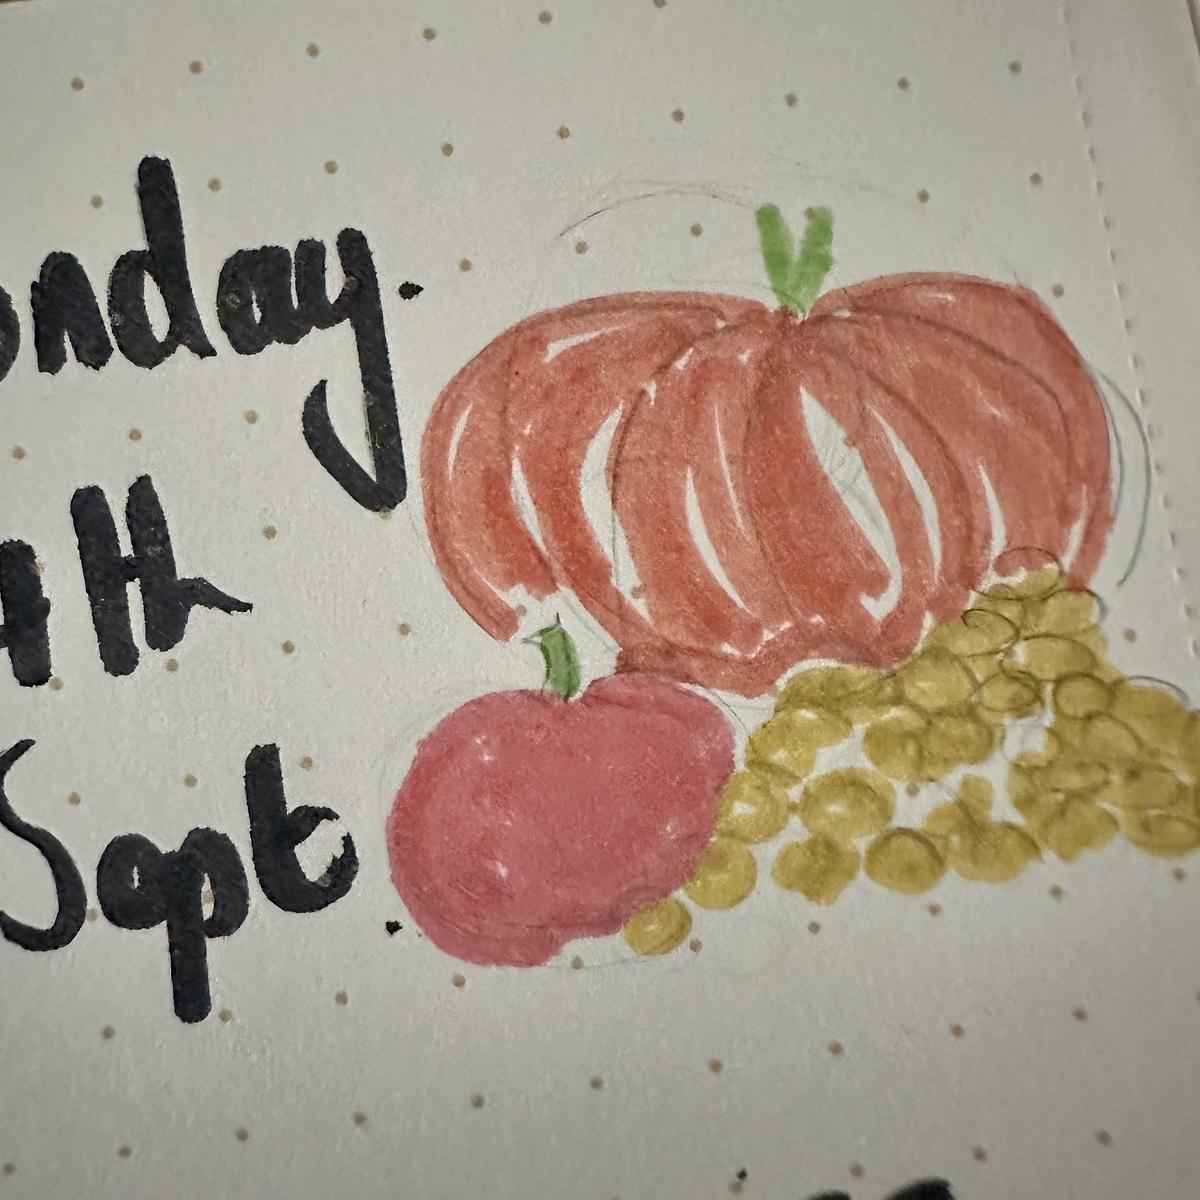 onday.
4th
Sept.